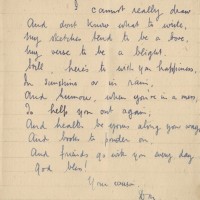 I cannot really draw
And don't know what to write,
My sketches tend to be a bore,
My verse to be a blight.
Still, here's to wish you happiness,
In sunshine or in rain,
And humour, when you're in a mess,
To help you out again;
And health be yours along your way,
And books to ponder on,
And friends go with you every day
God bless
Your cousin